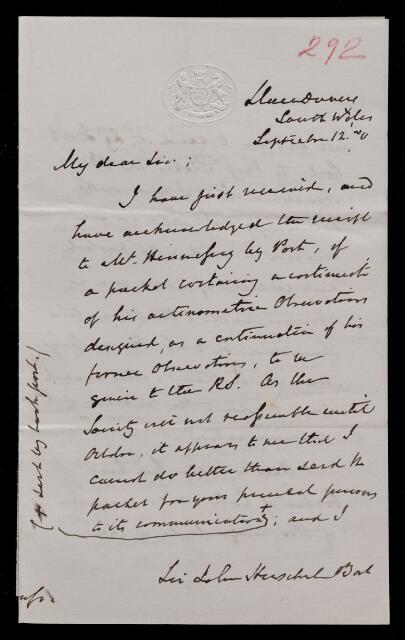 292
Llandovery
South Wales
September 12
My dear Sir:
I have just received, and
have acknowledged the receipt
to Mr. Hennessey by Post, of
a packet containing a continuatn
of his actinometric Observations
designed, as a continuation of his
former Observations, to be
given to the RS. As the
Society will not reassemble until
October, it appears to me that I
cannot do better than send the
packet for your perusal previous
to its communication+; and I
(+ sent by book post.)
Sir John Herschel Bart